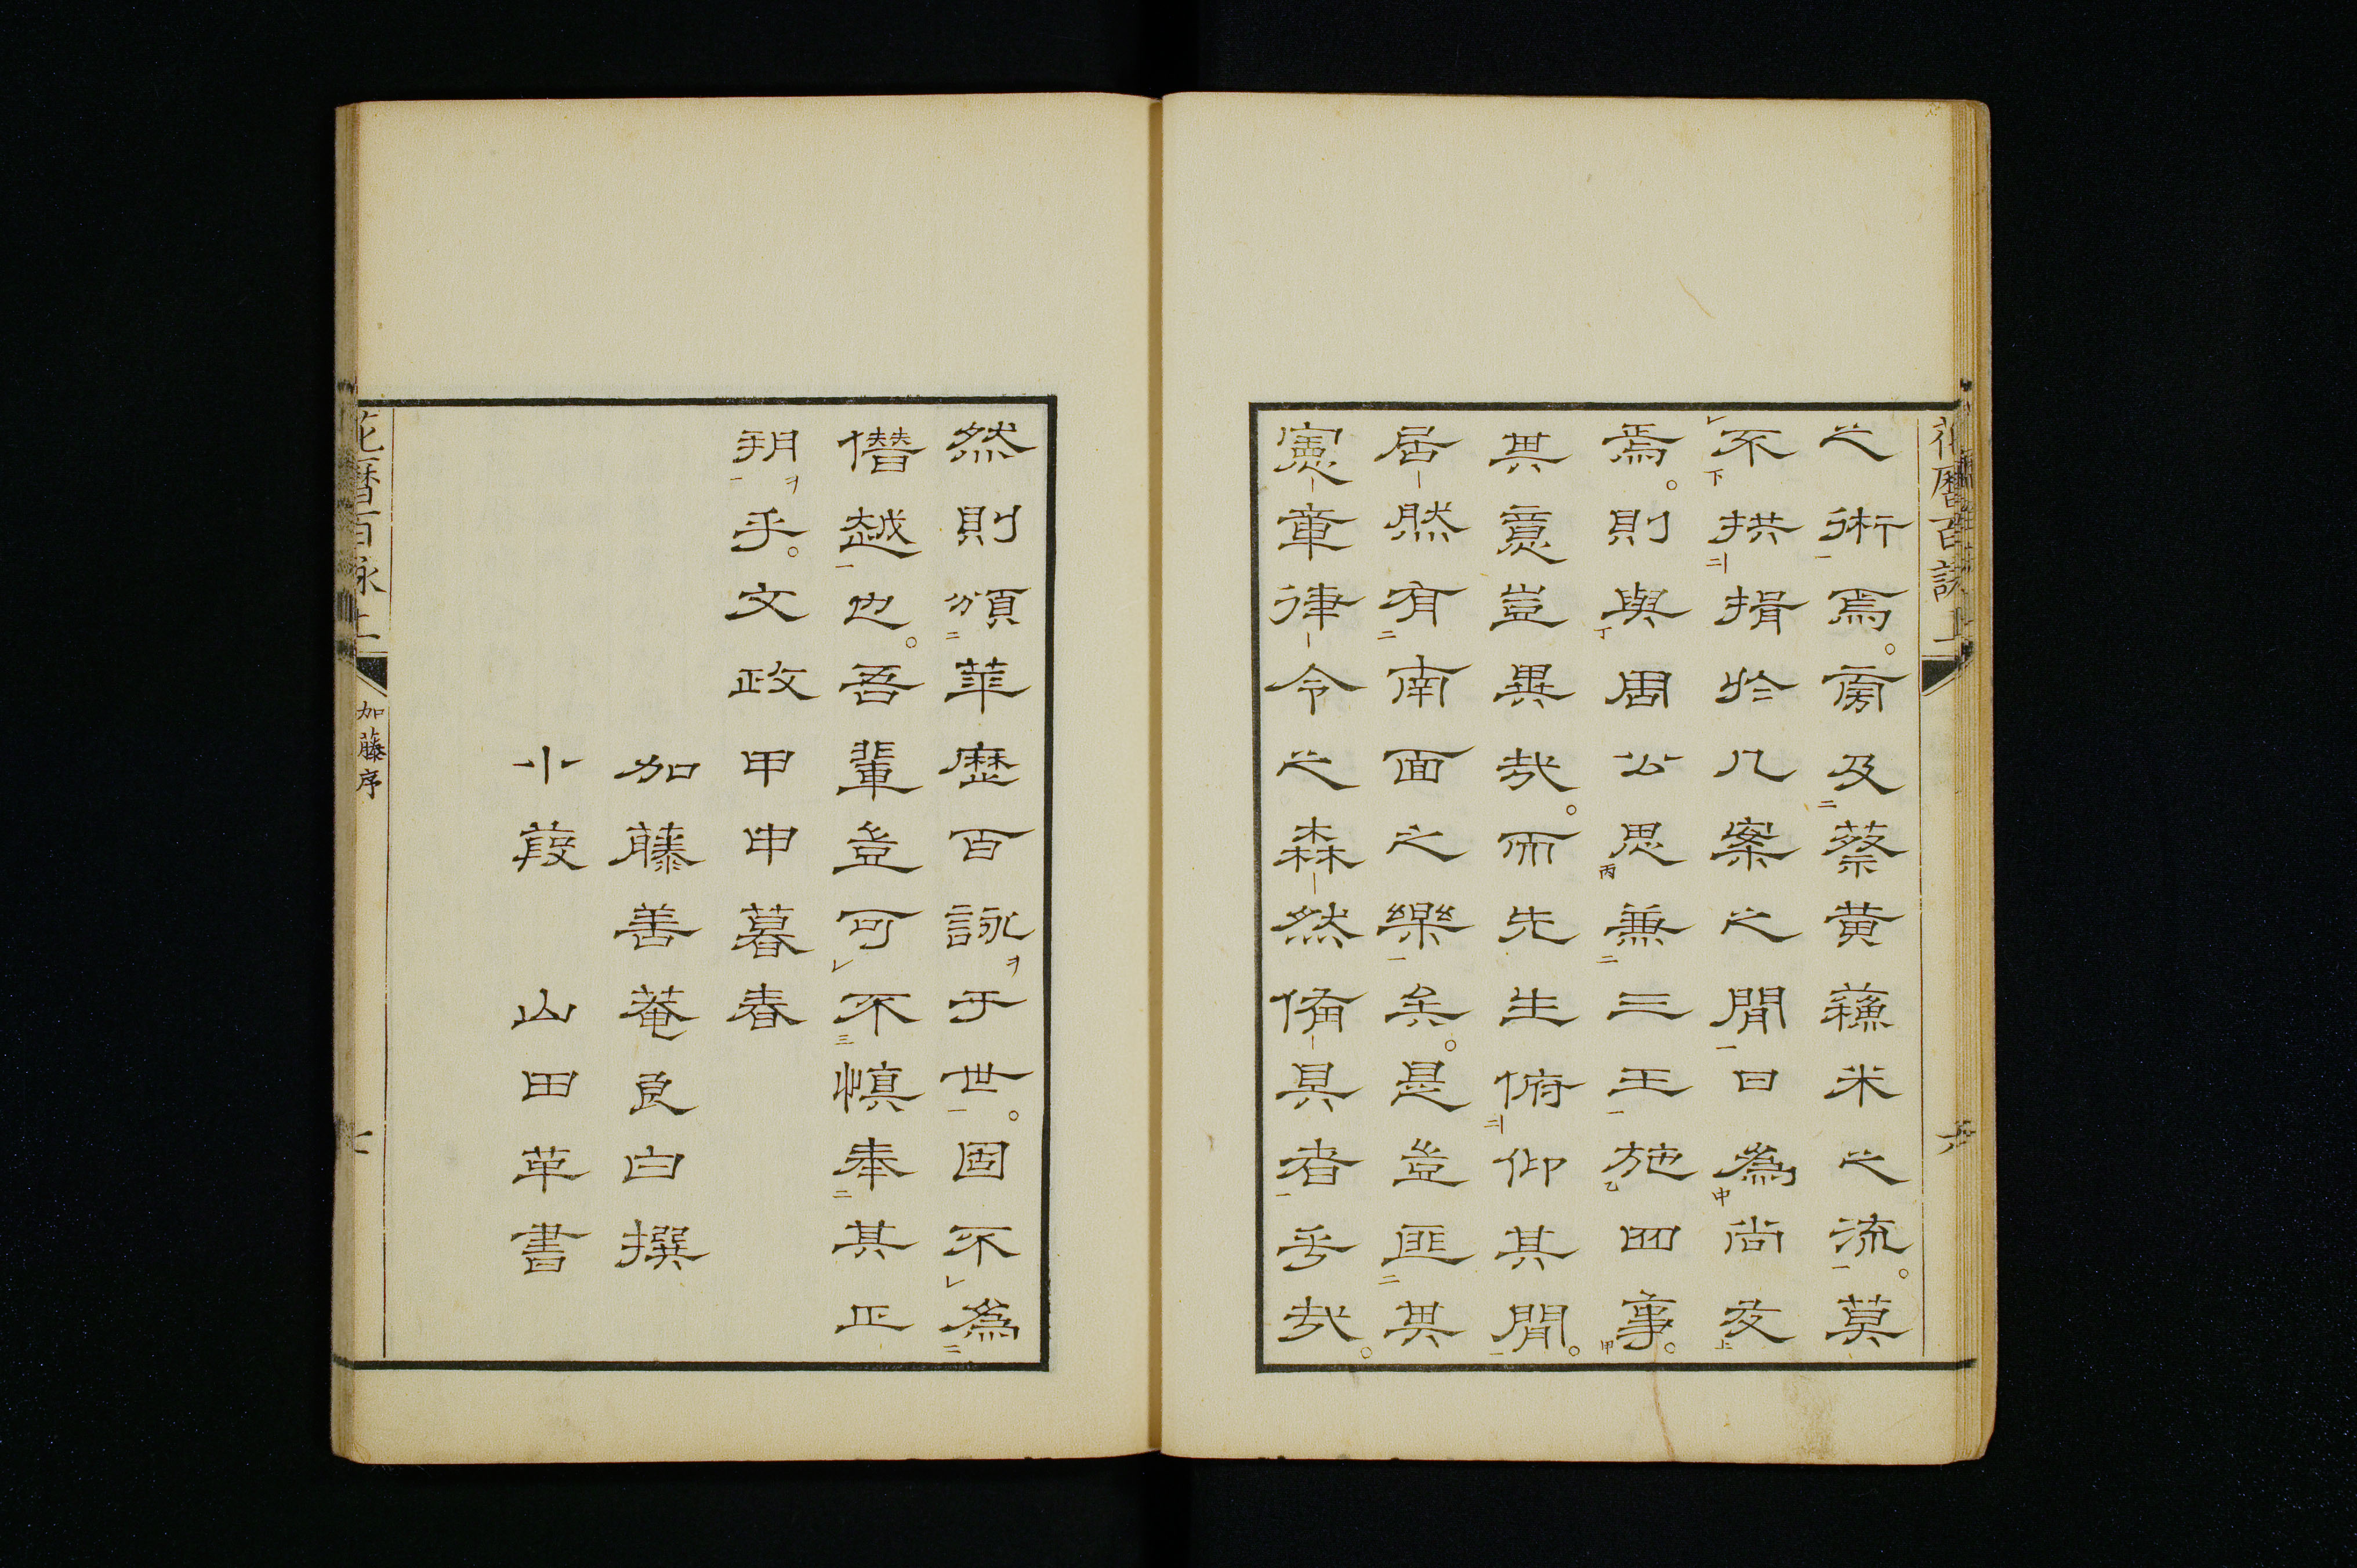 花曆百詠上
六
之術焉。旁及蔡黃蘓米之流。莫
不拱揖於几案之間日爲尚友
焉。則與周公思兼三王施四事。
其意豈異哉。而先生俯仰其間。
居然有南面之樂矣。是豈匪其
憲章律令之森然備具者乎哉。
然則頒華歷百詠于世。固不爲
僭越也。吾輩豈可不愼奉其正
朔乎。文政甲申暮春
加藤善菴良白撰
小葭 山田革書
花曆百詠上
加藤序
七